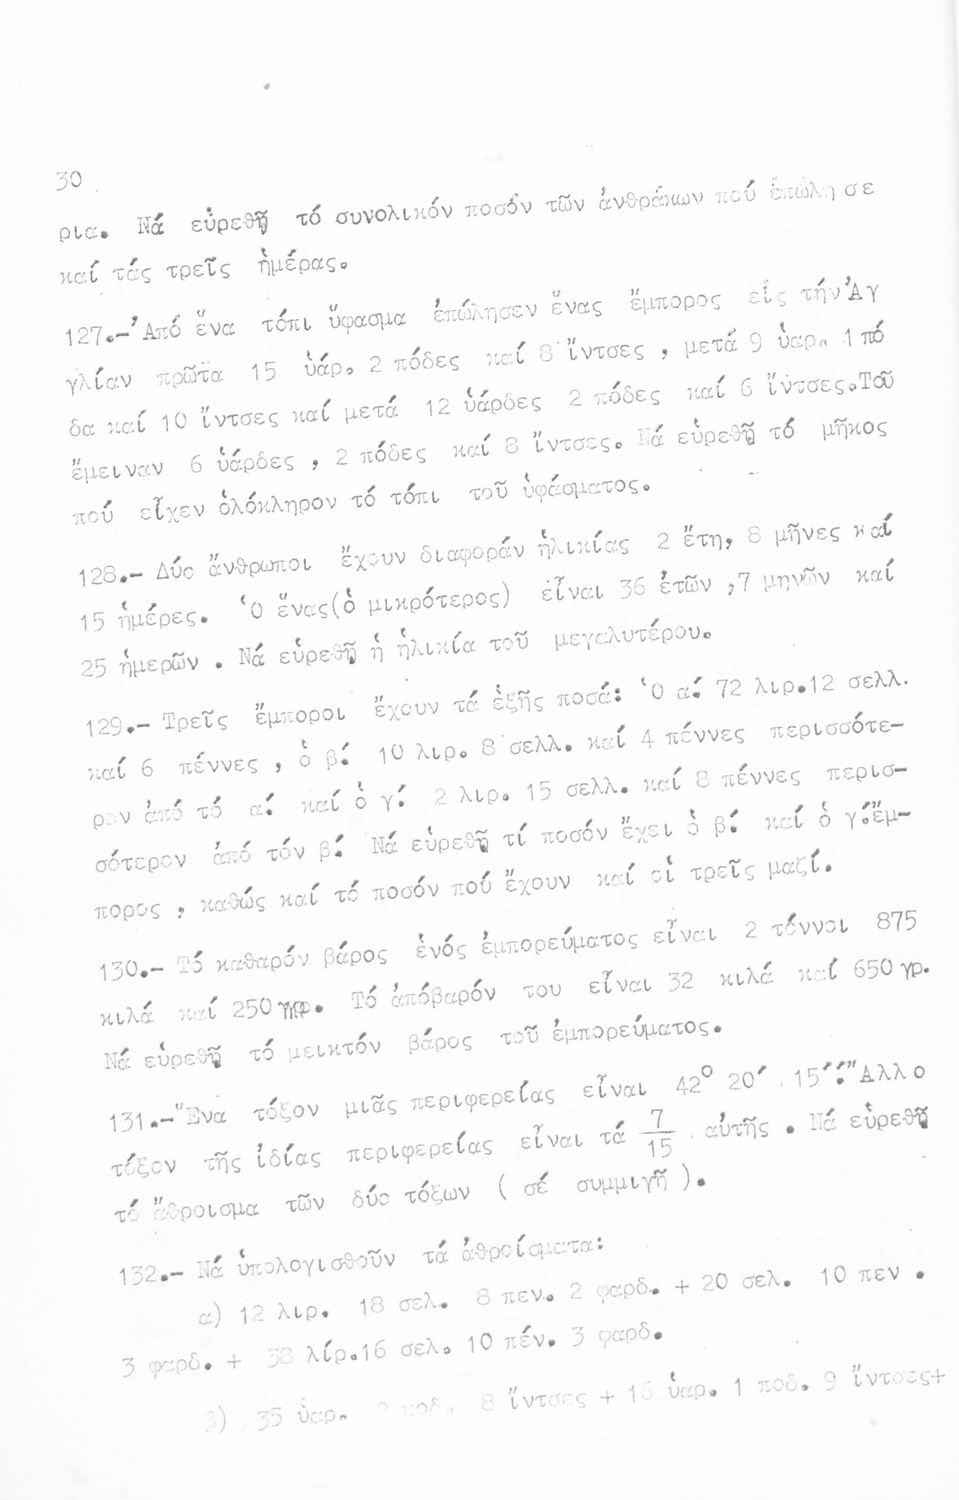 30
ρια. Νά εὑρεθῇ τό συνολικόν ποσόν τῶν ἀνθράκων πού ἐπώλησε
καί τάς τρεῖς ἡμέρας.
127.-Ἀπό ἕνα τόπι ὕφασμα ἐπώλησεν ἕνας ἔμπορος εἰς τήν Ἀγ
γλίαν πρῶτα 15 ὑάρ. 2 πόδες καί 8 ἴντσες , μετά 9 ὑαρ. 1 πό
δα καί 10 ἴντσες καί μετά 12 ὑάρδες 2 πόδες καί 6 ἴντσες.Τοῦ
ἔμειναν 6 ὑάρδες , 2 πόδες καί 8 ἴντσες. Νά εὑρεθῇ τό μῆκος
πού εἶχεν ὁλόκληρον τό τόπι τοῦ ὑφάσματος.
128.- Δύο ἄνθρωποι ἔχουν διαφοράν ἡλικίας 2 ἔτη, 8 μῆνες καί
15 ἡμέρες. Ὁ ἕνας(ὁ μικρότερος) εἶναι 36 ἐτῶν ,7 μηνῶν καί
25 ἡμερῶν . Νά εὑρεθῇ ἡ ἡλικία τοῦ μεγαλυτέρου.
129.- Τρεῖς ἔμποροι ἔχουν τά ἑξῆς ποσά: Ὁ α΄ 72 λιρ.12 σελλ.
καί 6 πέννες , ὁ β΄ 10 λιρ. 8 σελλ. καί 4 πέννες περισσότε-
ρον ἀπό τό α΄ καί ὁ γ΄ 2 λιρ. 15 σελλ. καί 8 πέννες περισ-
σότερον ἀπό τόν β΄ Νά εὑρεθῇ τί ποσόν ἔχει ὁ β΄ καί ὁ γ΄ἔμ-
πορος , καθώς καί τό ποσόν πού ἔχουν καί οἱ τρεῖς μαζί.
130.- Τό καθαρόν βάρος ἑνός ἐμπορεύματος εἶναι 2 τόννοι 875
κιλά καί 250 γρ. Τό ἀπόβαρόν του εἶναι 32 κιλά καί 650 γρ.
Νά εὑρεθῇ τό μεικτόν βάρος τοῦ ἐμπορεύματος.
131.-Ἕνα τόξον μιᾶς περιφερείας εἶναι 42° 20΄ 15΄΄.Ἄλλο
τόξον τῆς ἰδίας περιφερείας εἶναι τά 7/15 αὐτῆς . Νά εὑρεθῇ
τό ἄθροισμα τῶν δύο τόξων ( σέ συμμιγῆ ).
132.- Νά ὑπολογισθοῦν τά ἀθροίσματα:
α) 12 λιρ. 18 σελ. 8 πεν. 2 φαρδ. + 20 σελ. 10 πεν .
3 φαρδ. + 38 λίρ.16 σελ. 10 πέν. 3 φαρδ.
β) 35 ὑαρ. 8 ἴντσες + 16 ὑαρ. 1 ποδ. 9 ἴντσες+